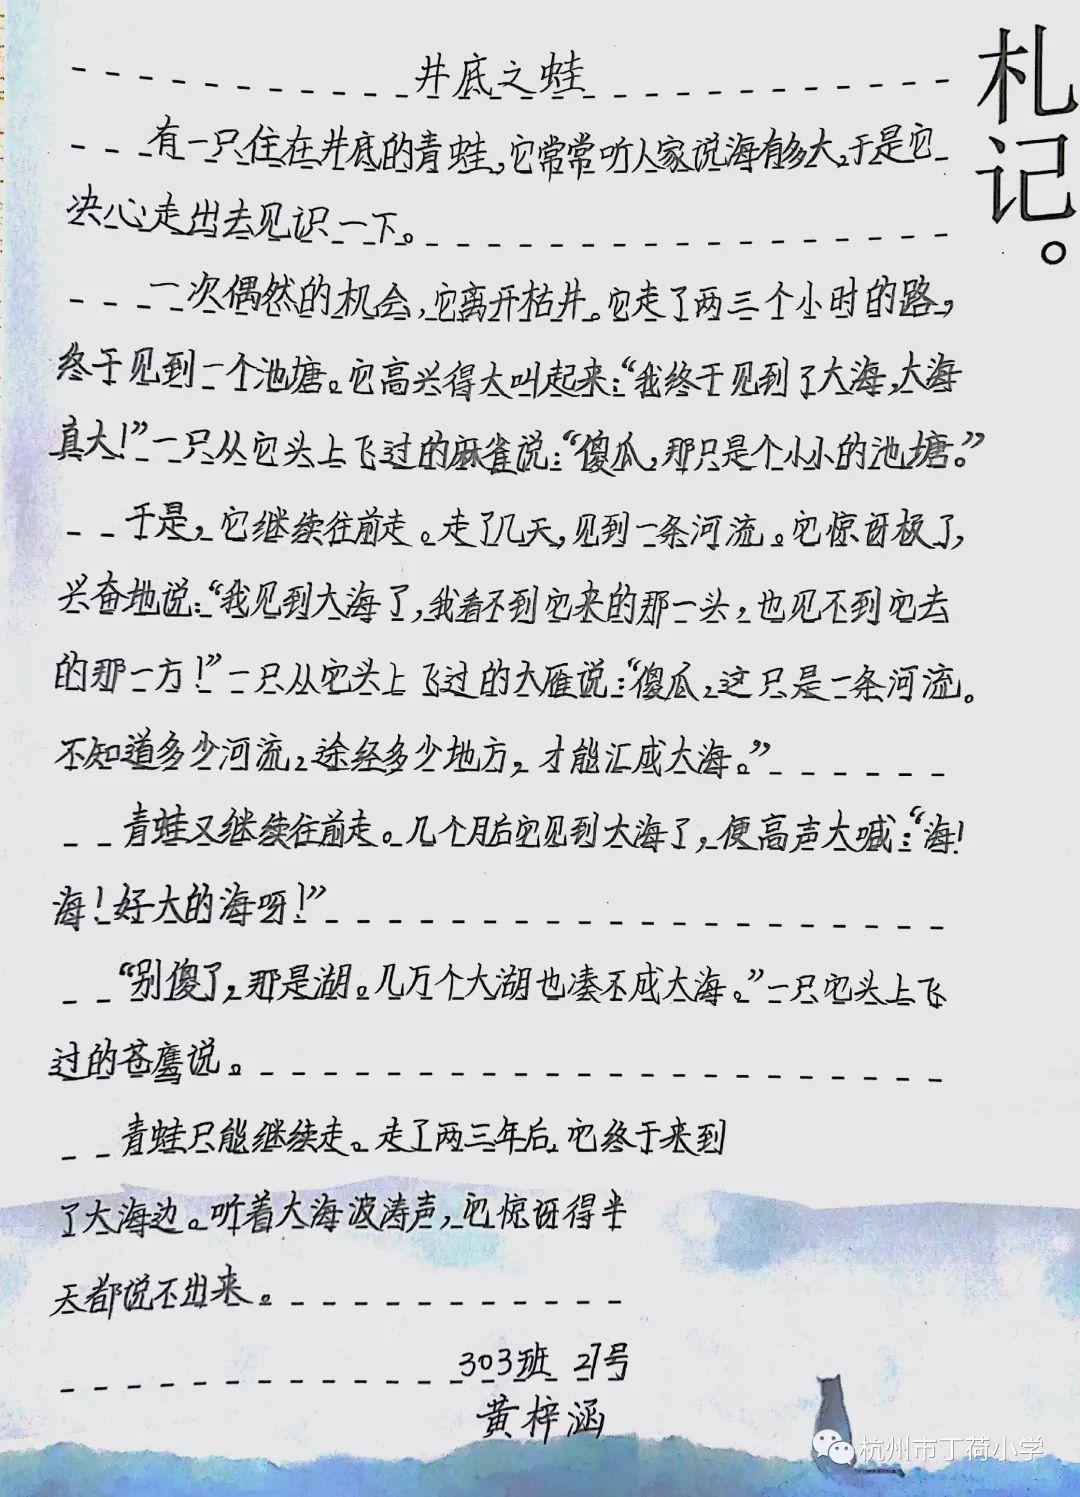 札记。
井底之蛙
有一只住在井底的青蛙,它常常听人家说海有多大,于是它
决心走出去见识一下。
一次偶然的机会,它离开枯井。它走了两三个小时的路,
终于见到一个池塘。它高兴得大叫起来:“我终于见到了大海,大海
真大!”一只从它头上飞过的麻雀说:“傻瓜,那只是个小小的池塘。”
于是,它继续往前走。走了几天,见到一条河流。它惊讶极了,
兴奋地说:“我见到大海了,我看不到它来的那一头,也见不到它去
的那一方!”一只从它头上飞过的大雁说:“傻瓜,这只是一条河流。
不知道多少河流,途经多少地方,才能汇成大海。”
青蛙又继续往前走。几个月后它见到大海了,便高声大喊:“海!
海!好大的海呀!”
“别傻了,那是湖。几万个大湖也凑不成大海。”一只它头上飞
过的苍鹰说。
青蛙只能继续走。走了两三年后,它终于来到
了大海边。听着大海波涛声,它惊讶得半
天都说不出来。
303班 27号
黄梓涵
杭州市丁荷小学